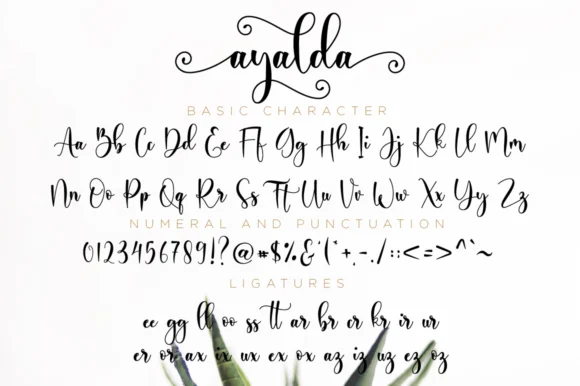 ayalda
BASIC CHARACTER
Aa Bb Cc Dd Ee Ff Gg Hh Ii Jj Kk Ll Mm
Nn Oo Pp Qq Rr Ss Tt Uu Vv Ww Xx Yy Zz
NUMERAL AND PUNCTUATION
0123456789!?@#$%&'(`+,-./::<=>^`~
LIGATURES
ee gg ll oo ss tt ar br er kr ir ur
er or ax ix ux ex ox az iz uz ez oz